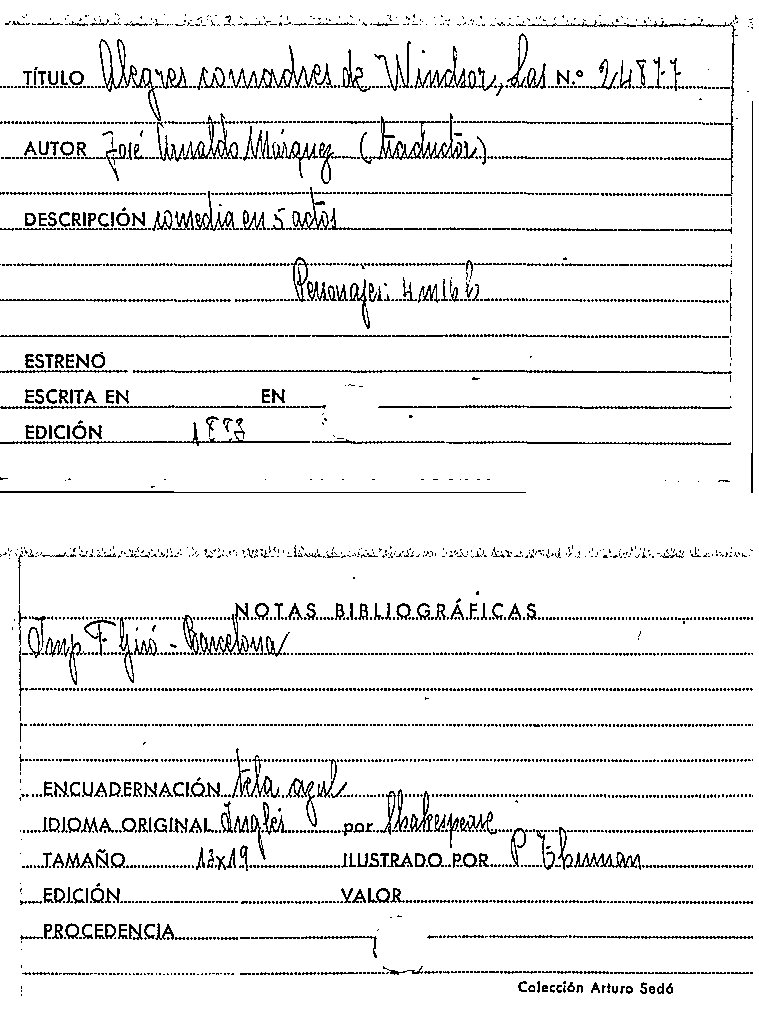 TÍTULO Alegres comadres de Windsor, Las N.º 24877
AUTOR José Arnaldo Márquez (traductor)
DESCRIPCIÓN comedia en 5 actos
Personajes: 4 m 16 h
ESTRENO
ESCRITA EN EN
EDICIÓN 1883
NOTAS BIBLIOGRÁFICAS
Imp F Giró - Barcelona
ENCUADERNACIÓN tela azul
IDIOMA ORIGINAL Inglés por Shakespeare
TAMAÑO 13x19 ILUSTRADO POR P
EDICIÓN VALOR
PROCEDENCIA
Colección Arturo Sedó